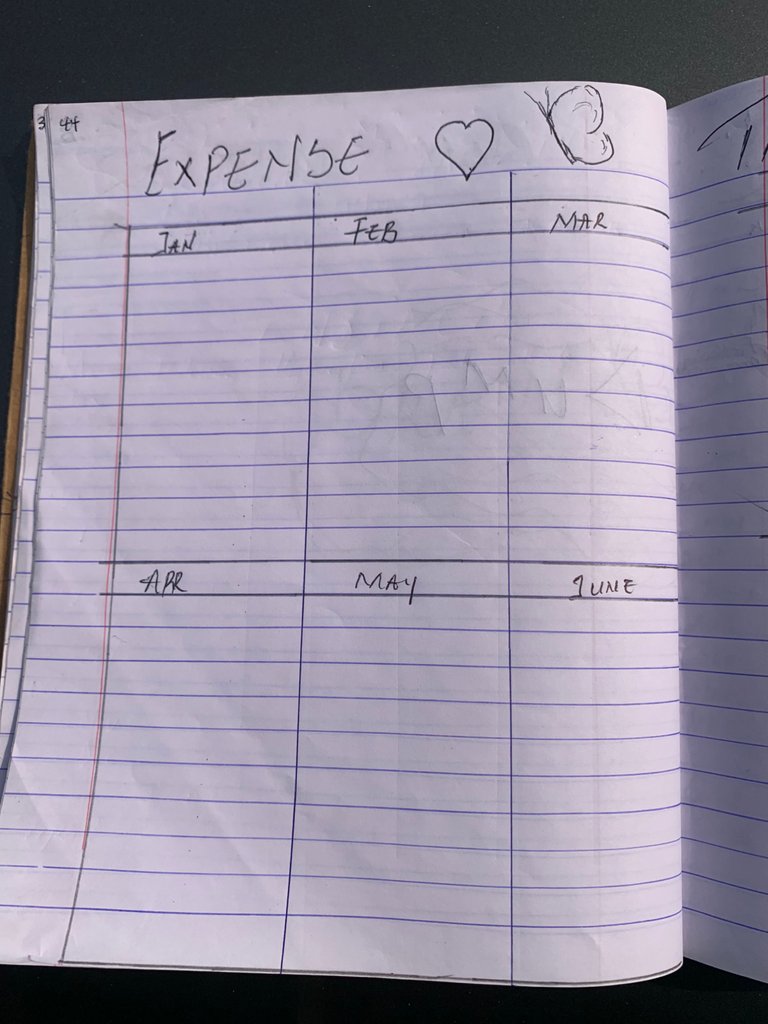 3 44
EXPENSE
JAN FEB MAR
APR MAY JUNE